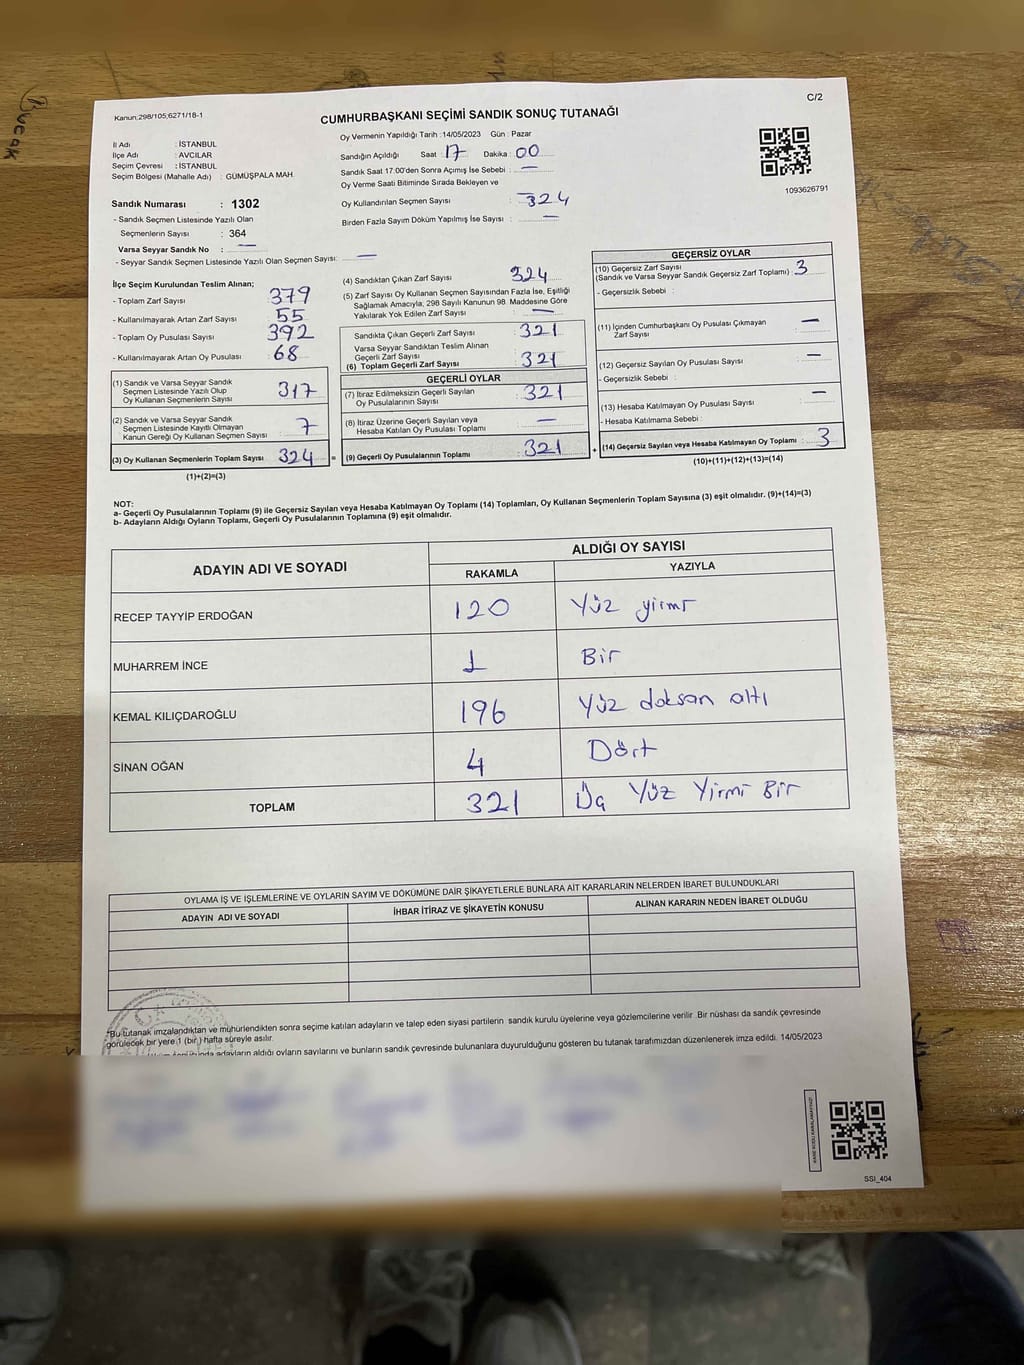 Bucak
C/2
Kanun:298/105;6271/18-1
CUMHURBAŞKANI SEÇİMİ SANDIK SONUÇ TUTANAĞI
Oy Vermenin Yapıldığı Tarih :14/05/2023 Gün : Pazar
İl Adı : İSTANBUL
İlçe Adı : AVCILAR
Seçim Çevresi : İSTANBUL
Seçim Bölgesi (Mahalle Adı) : GÜMÜŞPALA MAH.
Sandığın Açıldığı Saat 17 Dakika 00
Sandık Saat 17.00'den Sonra Açılmış İse Sebebi : —
Oy Verme Saati Bitiminde Sırada Bekleyen ve
Oy Kullandırılan Seçmen Sayısı : 324
Birden Fazla Sayım Döküm Yapılmış İse Sayısı : —
1093626791
Sandık Numarası : 1302
- Sandık Seçmen Listesinde Yazılı Olan
Seçmenlerin Sayısı : 364
Varsa Seyyar Sandık No : —
- Seyyar Sandık Seçmen Listesinde Yazılı Olan Seçmen Sayısı: —
İlçe Seçim Kurulundan Teslim Alınan;
- Toplam Zarf Sayısı : 379
- Kullanılmayarak Artan Zarf Sayısı : 55
- Toplam Oy Pusulası Sayısı : 392
- Kullanılmayarak Artan Oy Pusulası : 68
(1) Sandık ve Varsa Seyyar Sandık
Seçmen Listesinde Yazılı Olup
Oy Kullanan Seçmenlerin Sayısı : 317
(2) Sandık ve Varsa Seyyar Sandık
Seçmen Listesinde Kayıtlı Olmayan
Kanun Gereği Oy Kullanan Seçmen Sayısı : 7
(3) Oy Kullanan Seçmenlerin Toplam Sayısı : 324 =
(1)+(2)=(3)
(4) Sandıktan Çıkan Zarf Sayısı : 324
(5) Zarf Sayısı Oy Kullanan Seçmen Sayısından Fazla İse, Eşitliği
Sağlamak Amacıyla, 298 Sayılı Kanunun 98. Maddesine Göre
Yakılarak Yok Edilen Zarf Sayısı : —
Sandıkta Çıkan Geçerli Zarf Sayısı : 321
Varsa Seyyar Sandıktan Teslim Alınan
Geçerli Zarf Sayısı :
(6) Toplam Geçerli Zarf Sayısı : 321
GEÇERLİ OYLAR
(7) İtiraz Edilmeksizin Geçerli Sayılan
Oy Pusulalarının Sayısı : 321
(8) İtiraz Üzerine Geçerli Sayılan veya
Hesaba Katılan Oy Pusulası Toplamı : —
(9) Geçerli Oy Pusulalarının Toplamı : 321 +
GEÇERSİZ OYLAR
(10) Geçersiz Zarf Sayısı
(Sandık ve Varsa Seyyar Sandık Geçersiz Zarf Toplamı) : 3
- Geçersizlik Sebebi :
(11) İçinden Cumhurbaşkanı Oy Pusulası Çıkmayan
Zarf Sayısı : —
(12) Geçersiz Sayılan Oy Pusulası Sayısı : —
- Geçersizlik Sebebi :
(13) Hesaba Katılmayan Oy Pusulası Sayısı : —
- Hesaba Katılmama Sebebi :
(14) Geçersiz Sayılan veya Hesaba Katılmayan Oy Toplamı : 3
(10)+(11)+(12)+(13)=(14)
NOT:
a- Geçerli Oy Pusulalarının Toplamı (9) ile Geçersiz Sayılan veya Hesaba Katılmayan Oy Toplamı (14) Toplamları, Oy Kullanan Seçmenlerin Toplam Sayısına (3) eşit olmalıdır. (9)+(14)=(3)
b- Adayların Aldığı Oyların Toplamı, Geçerli Oy Pusulalarının Toplamına (9) eşit olmalıdır.
ADAYIN ADI VE SOYADI ALDIĞI OY SAYISI
RAKAMLA YAZIYLA
RECEP TAYYİP ERDOĞAN 120 Yüz yirmi
MUHARREM İNCE 1 Bir
KEMAL KILIÇDAROĞLU 196 Yüz doksan altı
SİNAN OĞAN 4 Dört
TOPLAM 321 Üç Yüz Yirmi Bir
OYLAMA İŞ VE İŞLEMLERİNE VE OYLARIN SAYIM VE DÖKÜMÜNE DAİR ŞİKAYETLERLE BUNLARA AİT KARARLARIN NELERDEN İBARET BULUNDUKLARI
ADAYIN ADI VE SOYADI İHBAR İTİRAZ VE ŞİKAYETİN KONUSU ALINAN KARARIN NEDEN İBARET OLDUĞU
*Bu tutanak imzalandıktan ve mühürlendikten sonra seçime katılan adayların ve talep eden siyasi partilerin sandık kurulu üyelerine veya gözlemcilerine verilir. Bir nüshası da sandık çevresinde
görülecek bir yere 1 (bir) hafta süreyle asılır.
adayların aldığı oyların sayılarını ve bunların sandık çevresinde bulunanlara duyurulduğunu gösteren bu tutanak tarafımızdan düzenlenerek imza edildi. 14/05/2023
SSI_404